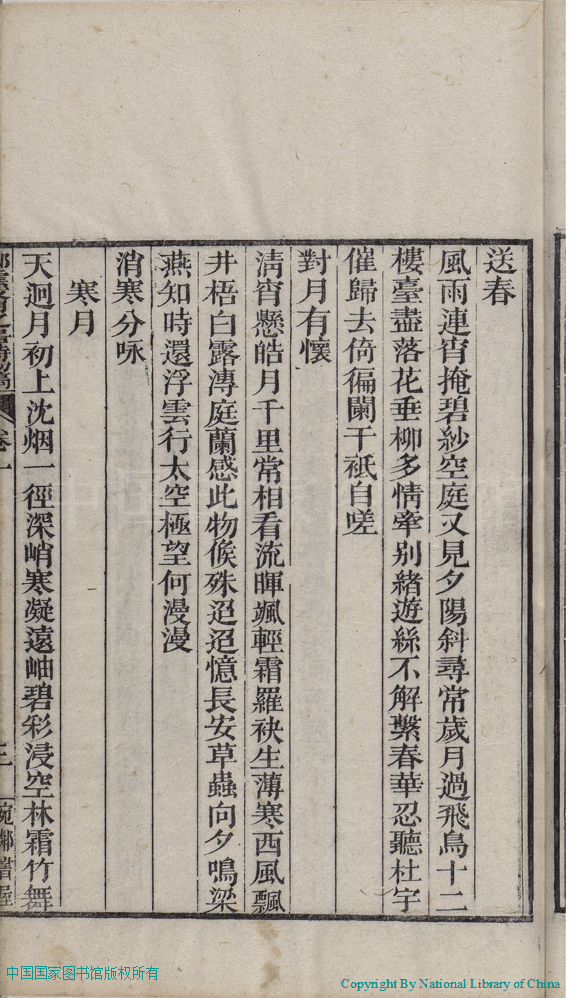 送春
風雨連宵掩碧紗空庭又見夕陽斜尋常歲月過飛鳥十二
樓臺盡落花垂柳多情牽别緒遊絲不解繫春華忍聽杜宇
催歸去倚徧闌干祗自嗟
對月有懷
淸宵懸皓月千里常相看流暉颯輕霜羅袂生薄寒西風飄
井梧白露漙庭蘭感此物候殊迢迢憶長安草蟲向夕鳴梁
燕知時還浮雲行太空極望何漫漫
消寒分咏
寒月
天迥月初上沈烟一徑深峭寒凝遠岫碧彩浸空林霜竹舞
中国国家图书馆版权所有
Copyright By National Library of China